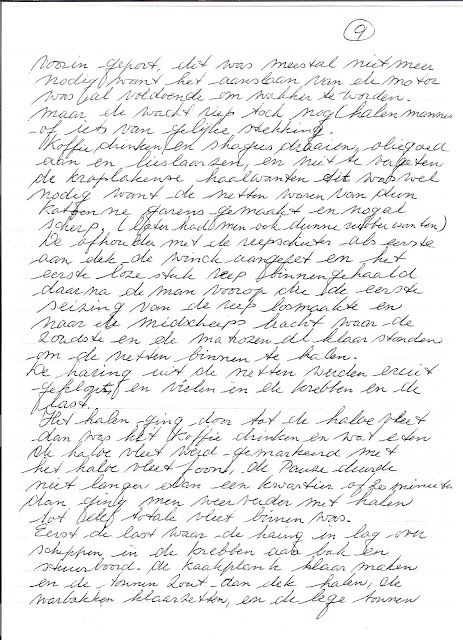 9
voorin gepord, dit was meestal niet meer
nodig want het aanslaan van de motor
was al voldoende om wakker te worden.
maar de wacht riep toch nog (halen mannen
of iets van gelijke strekking.
Koffie drinken en shagies draaien, oliegoed
aan en lieslaarzen, en niet te vergeten
de kraplakense haalwanten dit was wel
nodig want de netten waren van dun
katoenne garens gemaakt en nogal
scherp, (later had men ook dunne rubber wanten)
De afhouder met de reepschieter als eerste
aan dek de winch aangezet en het
eerste loze stuk reep binnengehaald
daarna de man voorop die de eerste
seizing van de reep losmaakte en
naar de midscheeps bracht waar de
oudste en de matrozen al klaar stonden
om de netten binnen te halen.
De haring uit de netten werden eruit
geklopt, en vielen in de krebben en de
last.
Het halen ging door tot de halve vleet
dan was het koffie drinken en wat eten
de halve vleet werd gemarkeerd met
het halve vleet joon, de Pauze duurde
niet langer dan een kwartier of 20 minuten
dan ging men weer verder met halen
tot de totale vleet binnen was.
Eerst de last waar de haring in lag over
scheppen in de krebben aan bak en
stuurboord de kaakplank klaar maken
en de tonnen zout aan dek halen, de
warbakken klaarzetten, en de lege tonnen